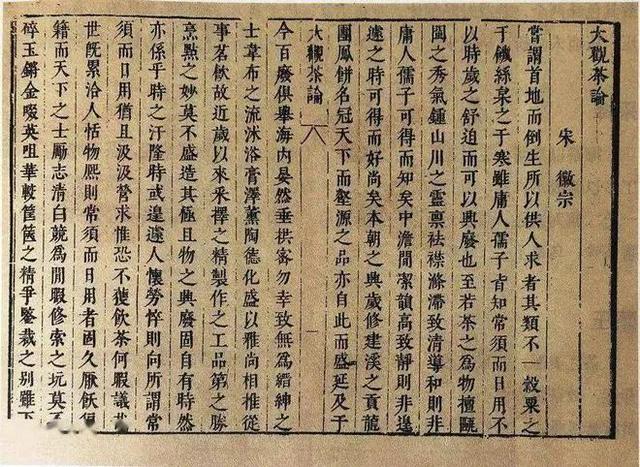 大觀茶論
宋徽宗
嘗謂首地而倒生所以供人求者其類不一穀粟之
于饑絲枲之于寒雖庸人孺子皆知常須而日用不
以時歲之舒迫而可以興廢也至若茶之為物擅甌
閩之秀氣鍾山川之靈禀祛襟滌滯致清導和則非
庸人孺子可得而知矣中澹閒潔韻高致靜則非遑
遽之時可得而好尚矣本朝之興歲修建溪之貢龍
團鳳餅名冠天下而壑源之品亦自此而盛延及于
大觀茶論
一
今百廢俱舉海內晏然垂拱密勿幸致無為縉紳之
士韋布之流沐浴膏澤薰陶德化盛以雅尚相推從
事茗飲故近歲以來采擇之精製作之工品第之勝
烹點之妙莫不盛造其極且物之興廢固自有時然
亦係乎時之汙隆時或遑遽人懷勞悴則向所謂常
須而日用猶且汲汲營求惟恐不獲飲茶何暇議
世既累洽人恬物熙則常須而日用者固久厭飫
籍而天下之士勵志清白競為閒暇修索之玩莫
碎玉鏘金啜英咀華較筐篋之精爭鑒裁之別雖下